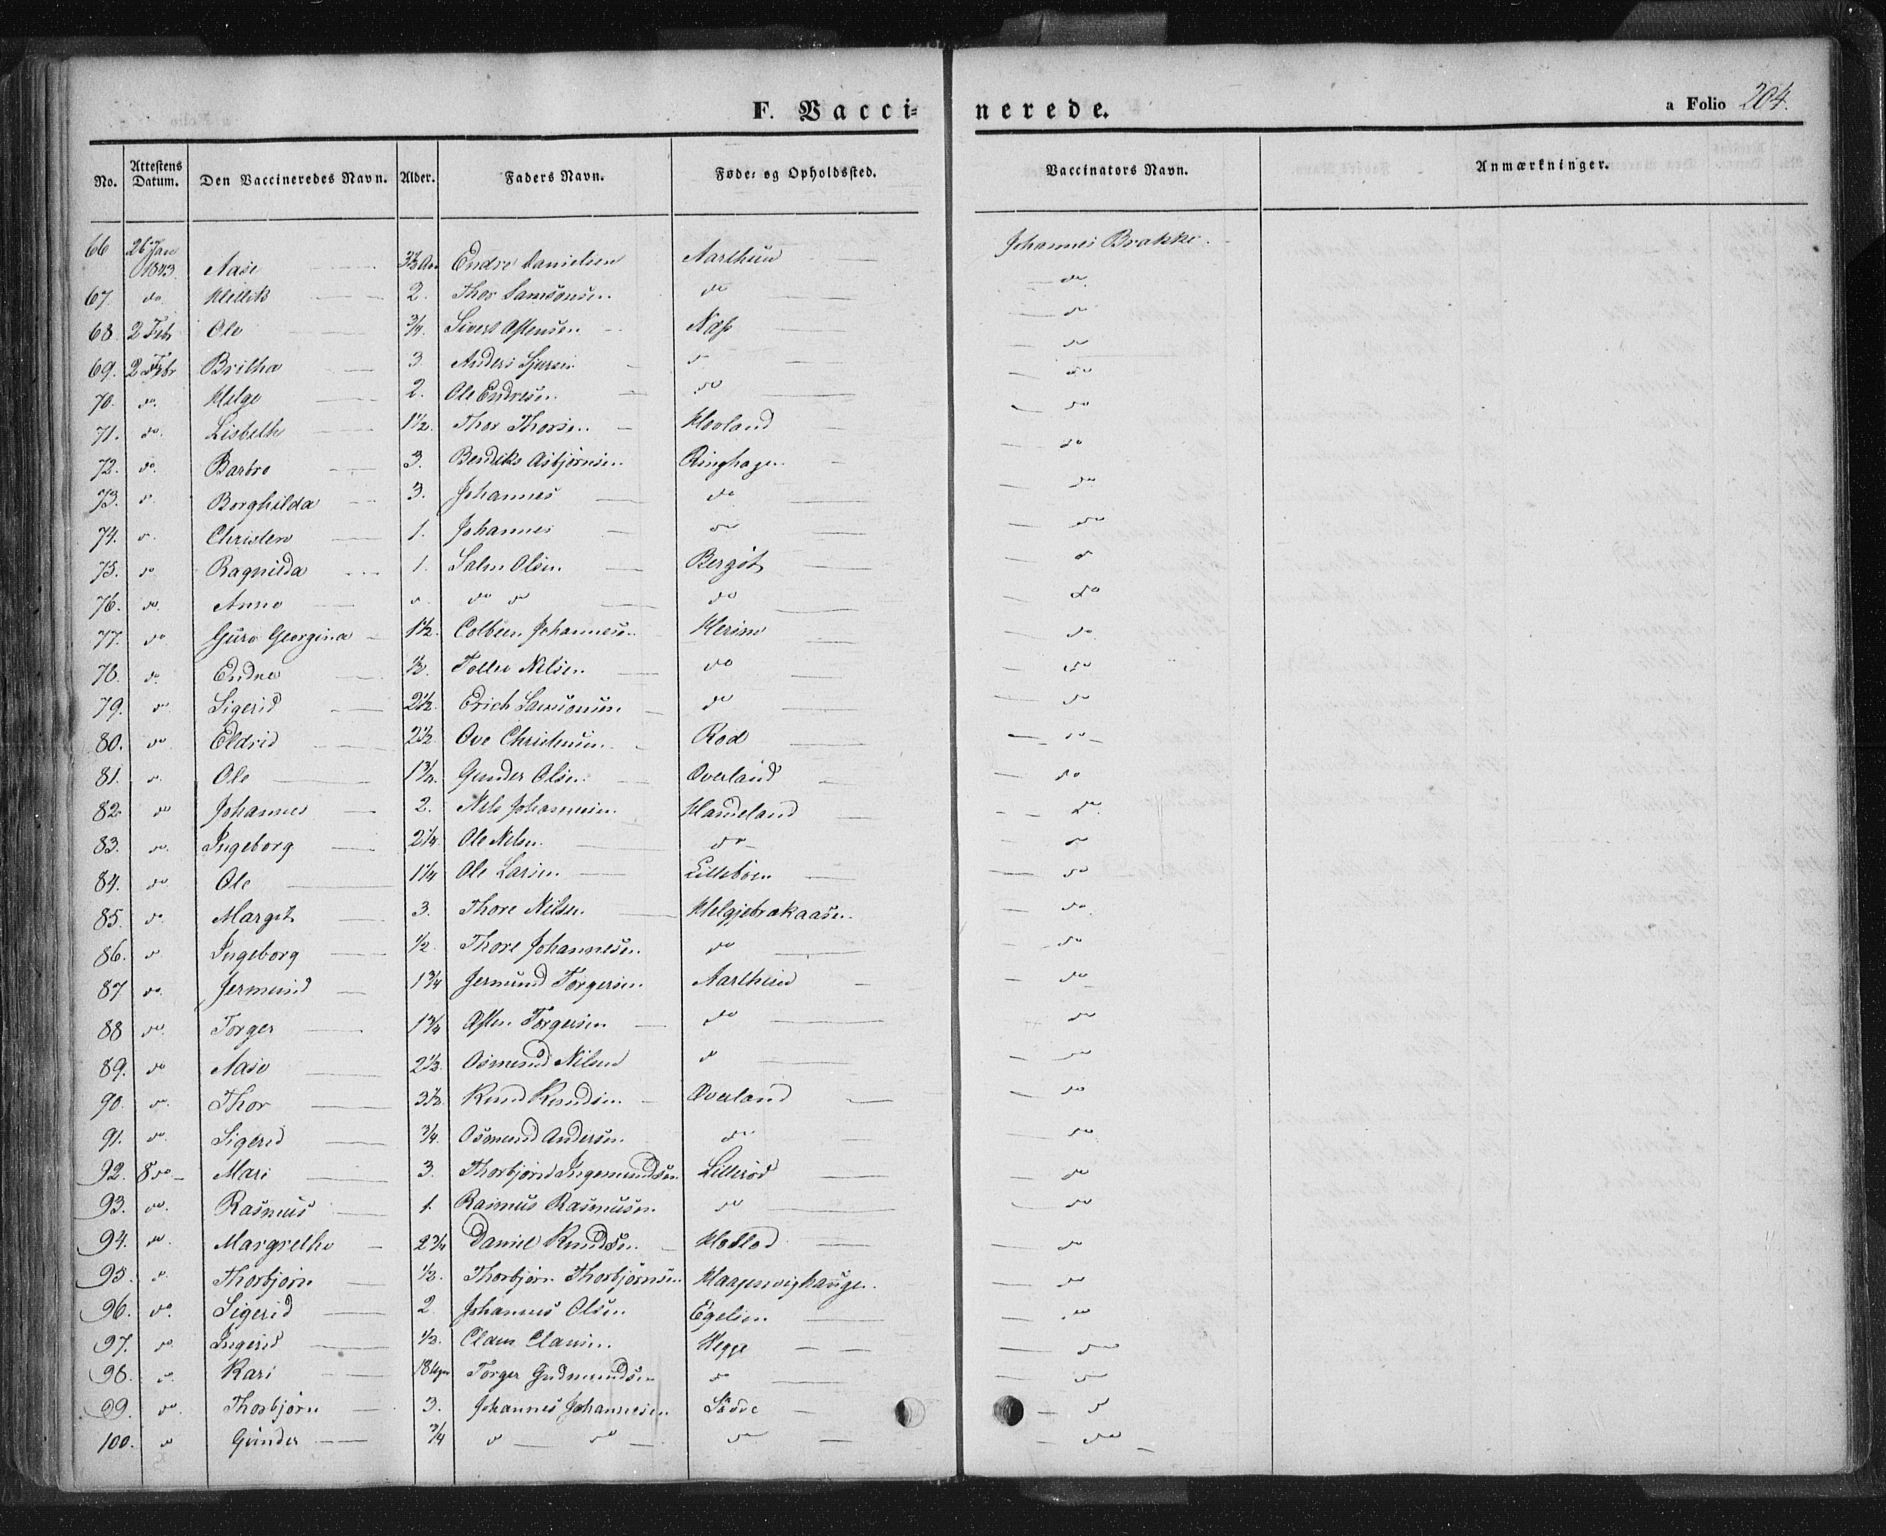 F. Vacci=nerede.
a Folio 204.
No. Attestens Datum. Den Vaccineredes Navn. Alder. Faders Navn. Føde- og Opholdssted. Vaccinators Navn. Anmærkninger.
66 26 Jan 1843 Aase Endre Danielsen Aarthun Johannes Brakke.
67. do 2. Thor Samsonsen do do
68. 2 Feb Ole 3/4 Sivert Astensen Næss do
69. 2 Febr Britha 3 Anders do do
70. do. Helge 2. Ole Endresen do do
71. do. Lisbeth 1 1/2. Thor Thorsen Hovland do
72. do. Barbro 3. Bendiks Asbjørnsen Ringhagen do
73. do Borghilda 3. Johannes do do
74. do Christen 1. Johannes do do
75. do Ragnilda 1. Olsen Bergit do
76. do. Anne do do do do do
77. do Guro Georgina 1 1/2. Colbeen Johannesen do
78. do. Endre 1/2. Nilsen do do
79. do. Sigerid 2 1/2. Erich Samsonsen do do
80. do Eldrid 2 1/2. Ove Christensen Rod do
81. do. Ole Gunder Olsen Overland do
82. do Johannes 2. Nils Johannesen Handeland do
83. do. Ingeborg 2 1/4 Ole Nilsen do do
84. do Ole 1 1/4 Ole Larsen do
85. do. Margit 3. Thore Nilsen Helgjebrakaasen do
86. do Ingeborg 1/2. Thore Johannesen do do
87 do. Jermund 1 3/4 Jermund Torgersen Aarthun do
88 do Torger 1 3/4 Asten Torgersen do do
89. do Aase Osmund Nilsen do do
90. do. Thor 3 1/2. Knud Knudsen Overland do
91. do. Sigerid 3/4. Osmund Andersen do do
92. 8 do Mari 3. Thorbjørn Ingemundsen Lillerød do
93. do. Rasmus 1. Rasmus Rasmusen do do
94. do Margrethe 2 3/4 Daniel Knudsen do
95. do. Thorbjørn 1/2. Thorbjørn Thorbjørnsen do
96. do. Sigerid 2. Johannes Olsen Egelien do
97. do Ingerid 1/2. Claus Clausen Hegge do
98. do. Kari 18 Torger Gudmundsen do do
99. do. Thorbjørn 3. Johannes Johannesen do
100. do Gunder 3/4 do do do do